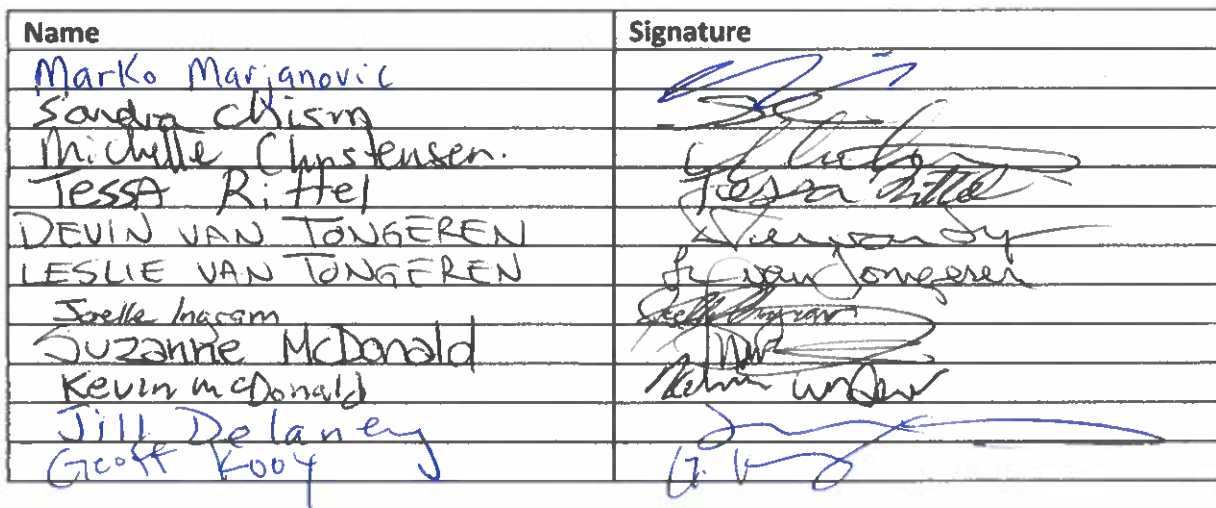 Name Signature
Marko Marjanovic
Sandra Chism
Michelle Christensen.
Tessa Rittel Tessa Rittel
DEVIN VAN TONGEREN
LESLIE VAN TONGEREN L van Tongeren
Joelle Ingram Joelle Ingram
Suzanne McDonald
Kevin McDonald
Jill Delaney
Geoff Kooy G. Kooy